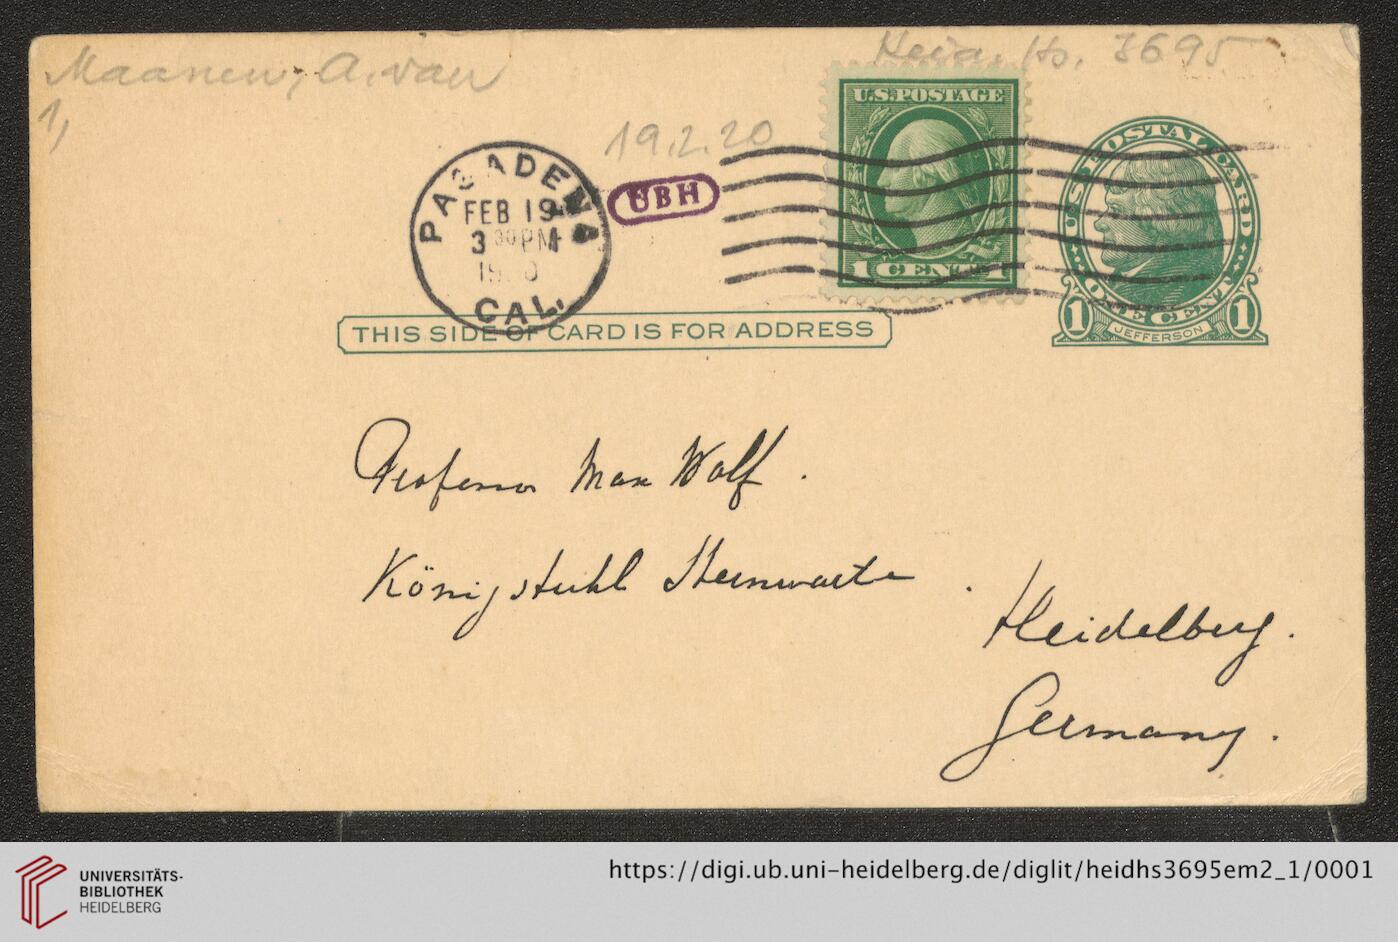 Maanen, A. van
Heid. Hs. 3695
1,
19.2.20
U.S. POSTAGE
1 CENT 1
U.S. POSTAL CARD
ONE CENT
1 JEFFERSON 1
PASADENA
FEB 19
3 30 PM
CAL.
UBH
THIS SIDE OF CARD IS FOR ADDRESS
Professor Max Wolf.
Königstuhl Sternwarte.
Heidelberg.
Germany.
UNIVERSITÄTS-
BIBLIOTHEK
HEIDELBERG
https://digi.ub.uni-heidelberg.de/diglit/heidhs3695em2_1/0001